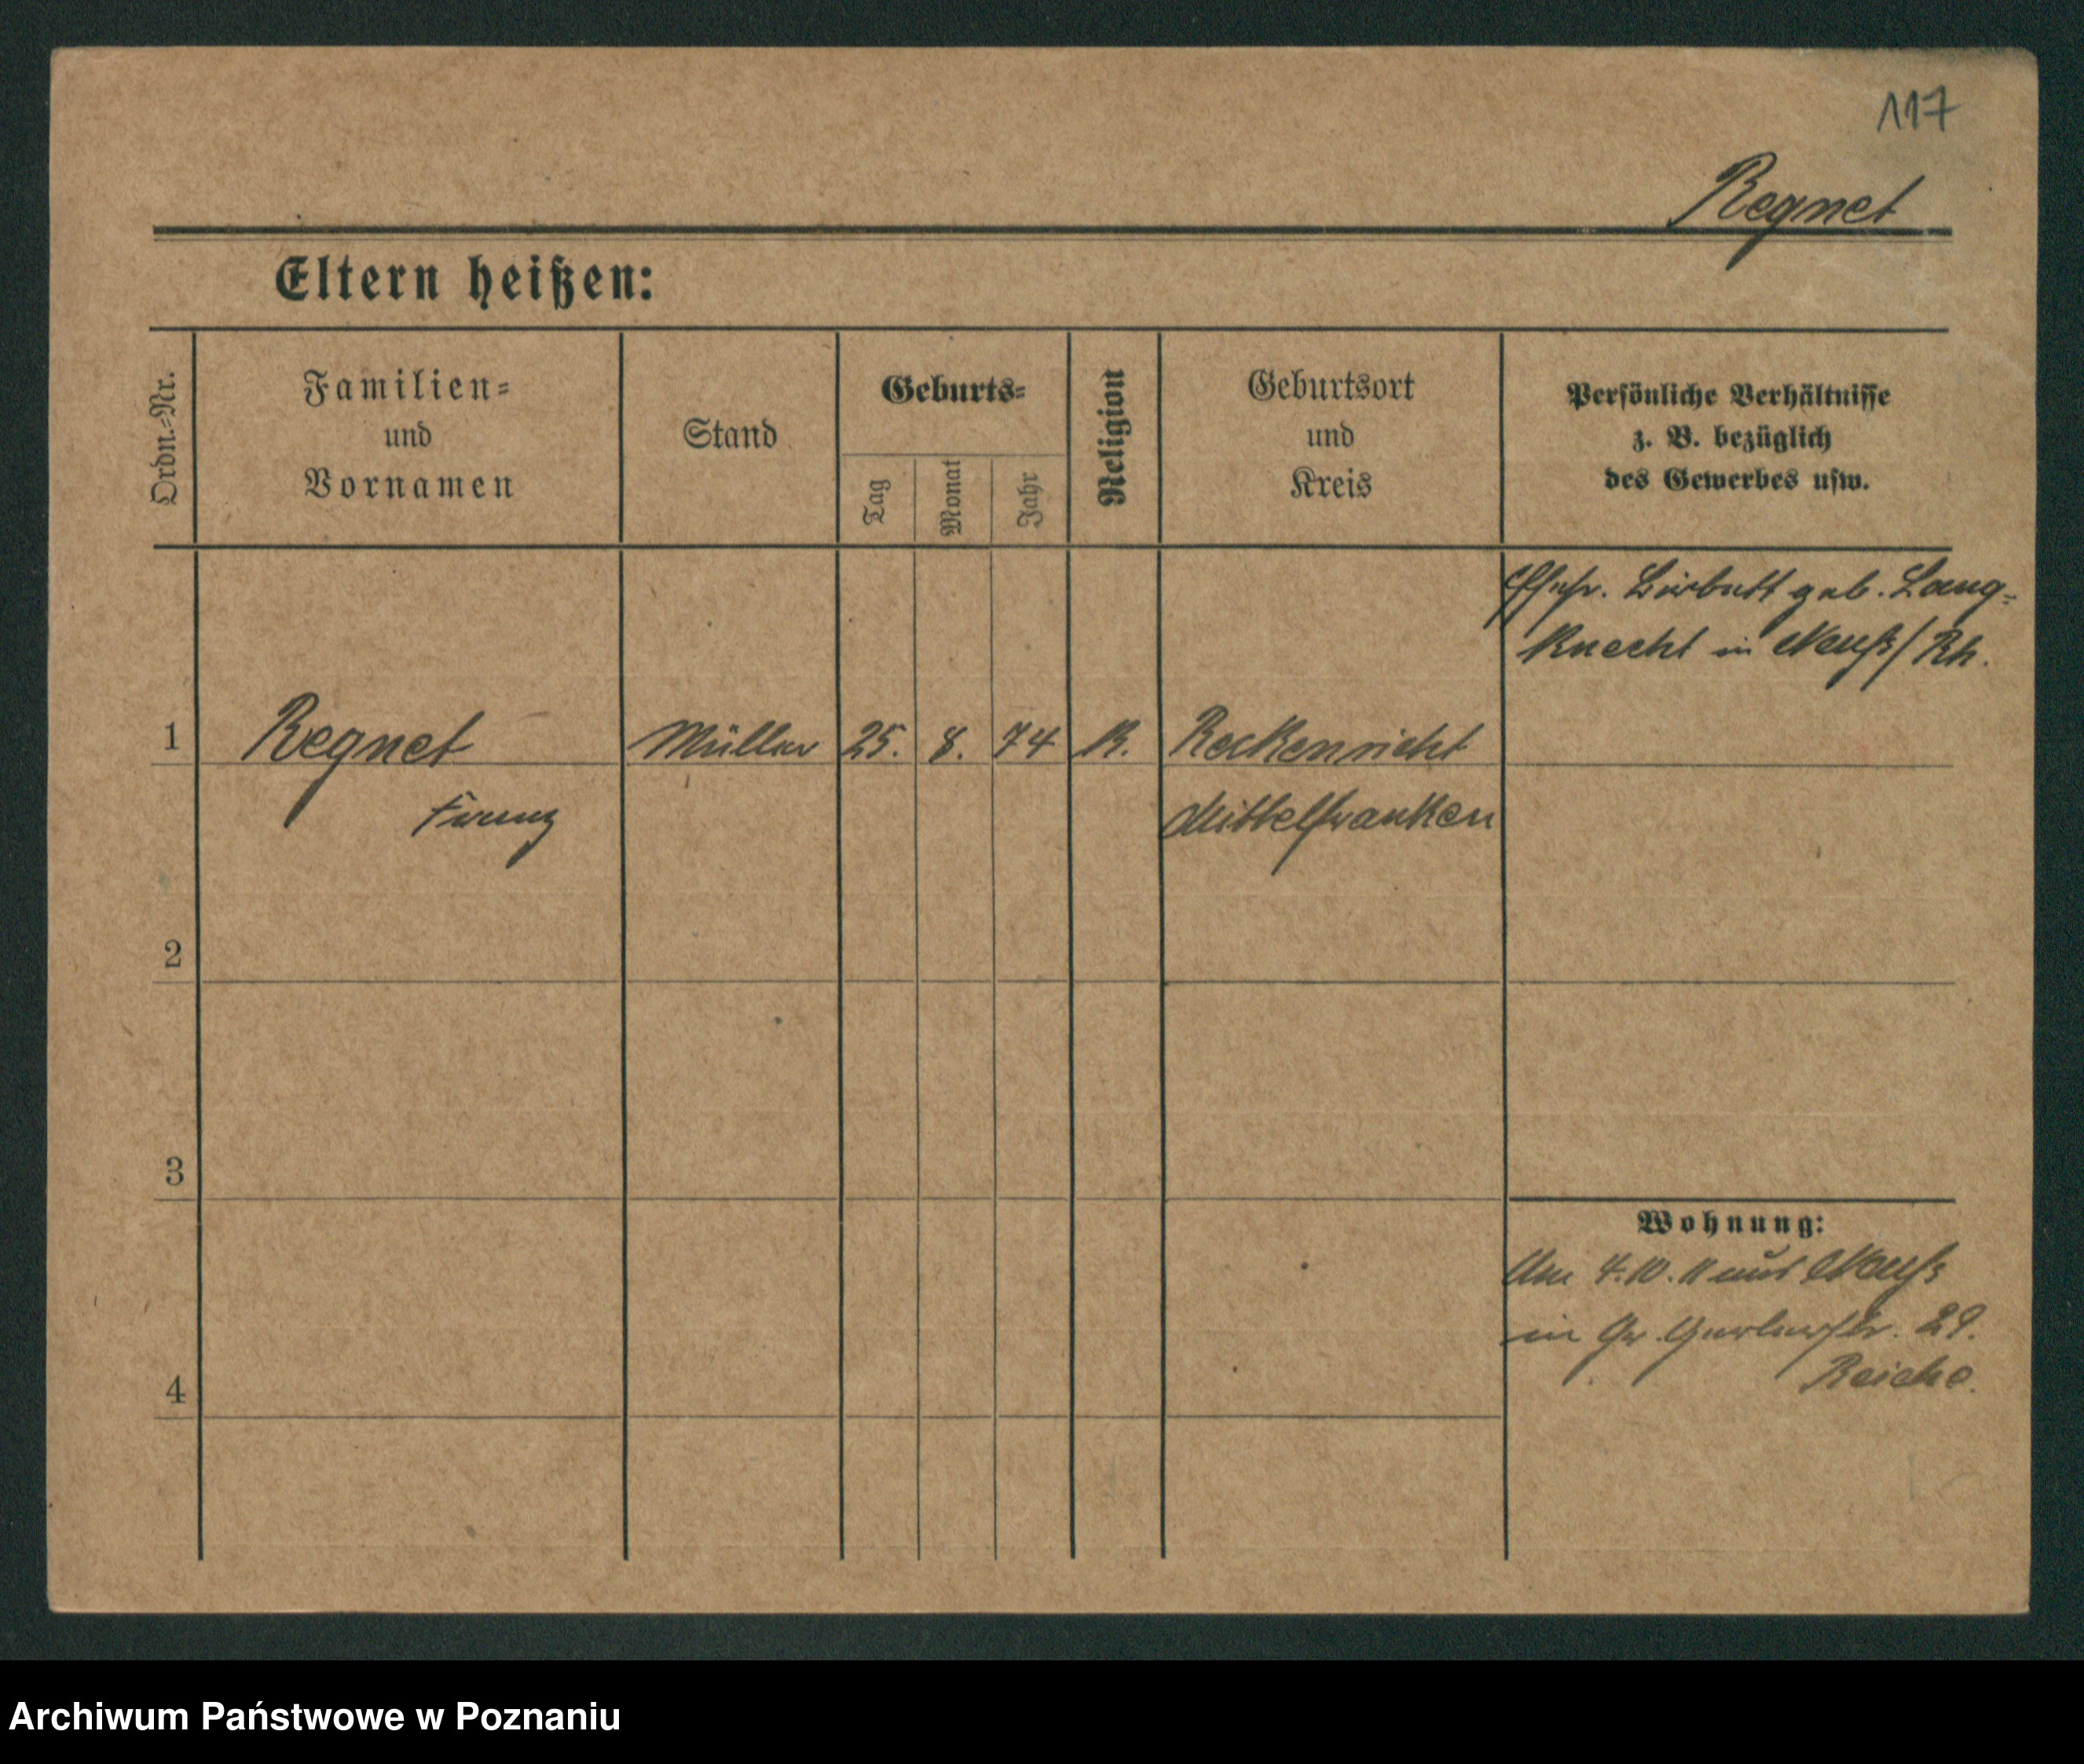 117
Regnet
Eltern heißen:
Ordn.-Nr.
Familien-
und
Vornamen
Stand
Geburts-
Tag
Monat
Jahr
Religion
Geburtsort
und
Kreis
Persönliche Verhältnisse
z. B. bezüglich
des Gewerbes usw.
geb. Lang-
Knecht in Neuß/Rh.
1 Regnet Müller 25. 8. 74 K. Reckenricht
Franz Mittelfranken
2
3
4
Wohnung:
Am 4.10.11 aus Neuß
in Gr. Gerberstr. 29.
Reiche.
Archiwum Państwowe w Poznaniu